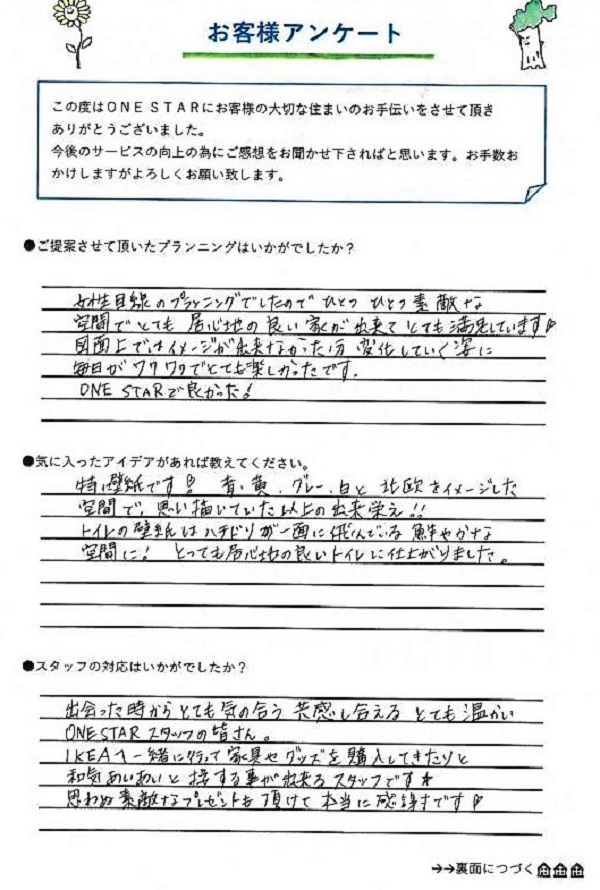 お客様アンケート
この度はONE STARにお客様の大切な住まいのお手伝いをさせて頂き
ありがとうございました。
今後のサービスの向上の為にご感想をお聞かせ下さればと思います。お手数お
かけしますがよろしくお願い致します。
●ご提案させて頂いたプランニングはいかがでしたか?
女性目線のプランニングでしたので ひとつ ひとつ素敵な
空間でとても 居心地の良い家が出来て とても満足しています
図面上ではイメージが出来なかった分 変化していく姿に
毎日がワクワクでとても楽しかったです。
ONE STARで良かった!
●気に入ったアイデアがあれば教えてください。
特に壁紙です! 青、黄、グレー、白と 北欧をイメージした
空間で、思い描いていた以上の出来栄え!!
トイレの壁紙はハチドリが一面に飛んでいる 鮮やかな
空間に! とっても居心地の良いトイレに仕上がりました。
●スタッフの対応はいかがでしたか?
出会った時からとても気の合う 共感し合える とても温かい
ONE STAR スタッフの皆さん。
IKEAへ一緒に行って 家具やグッズを購入してきたりと
和気あいあいと 接する事が出来るスタッフです★
思わぬ素敵なプレゼントも頂けて 本当に感謝です
→→裏面につづく